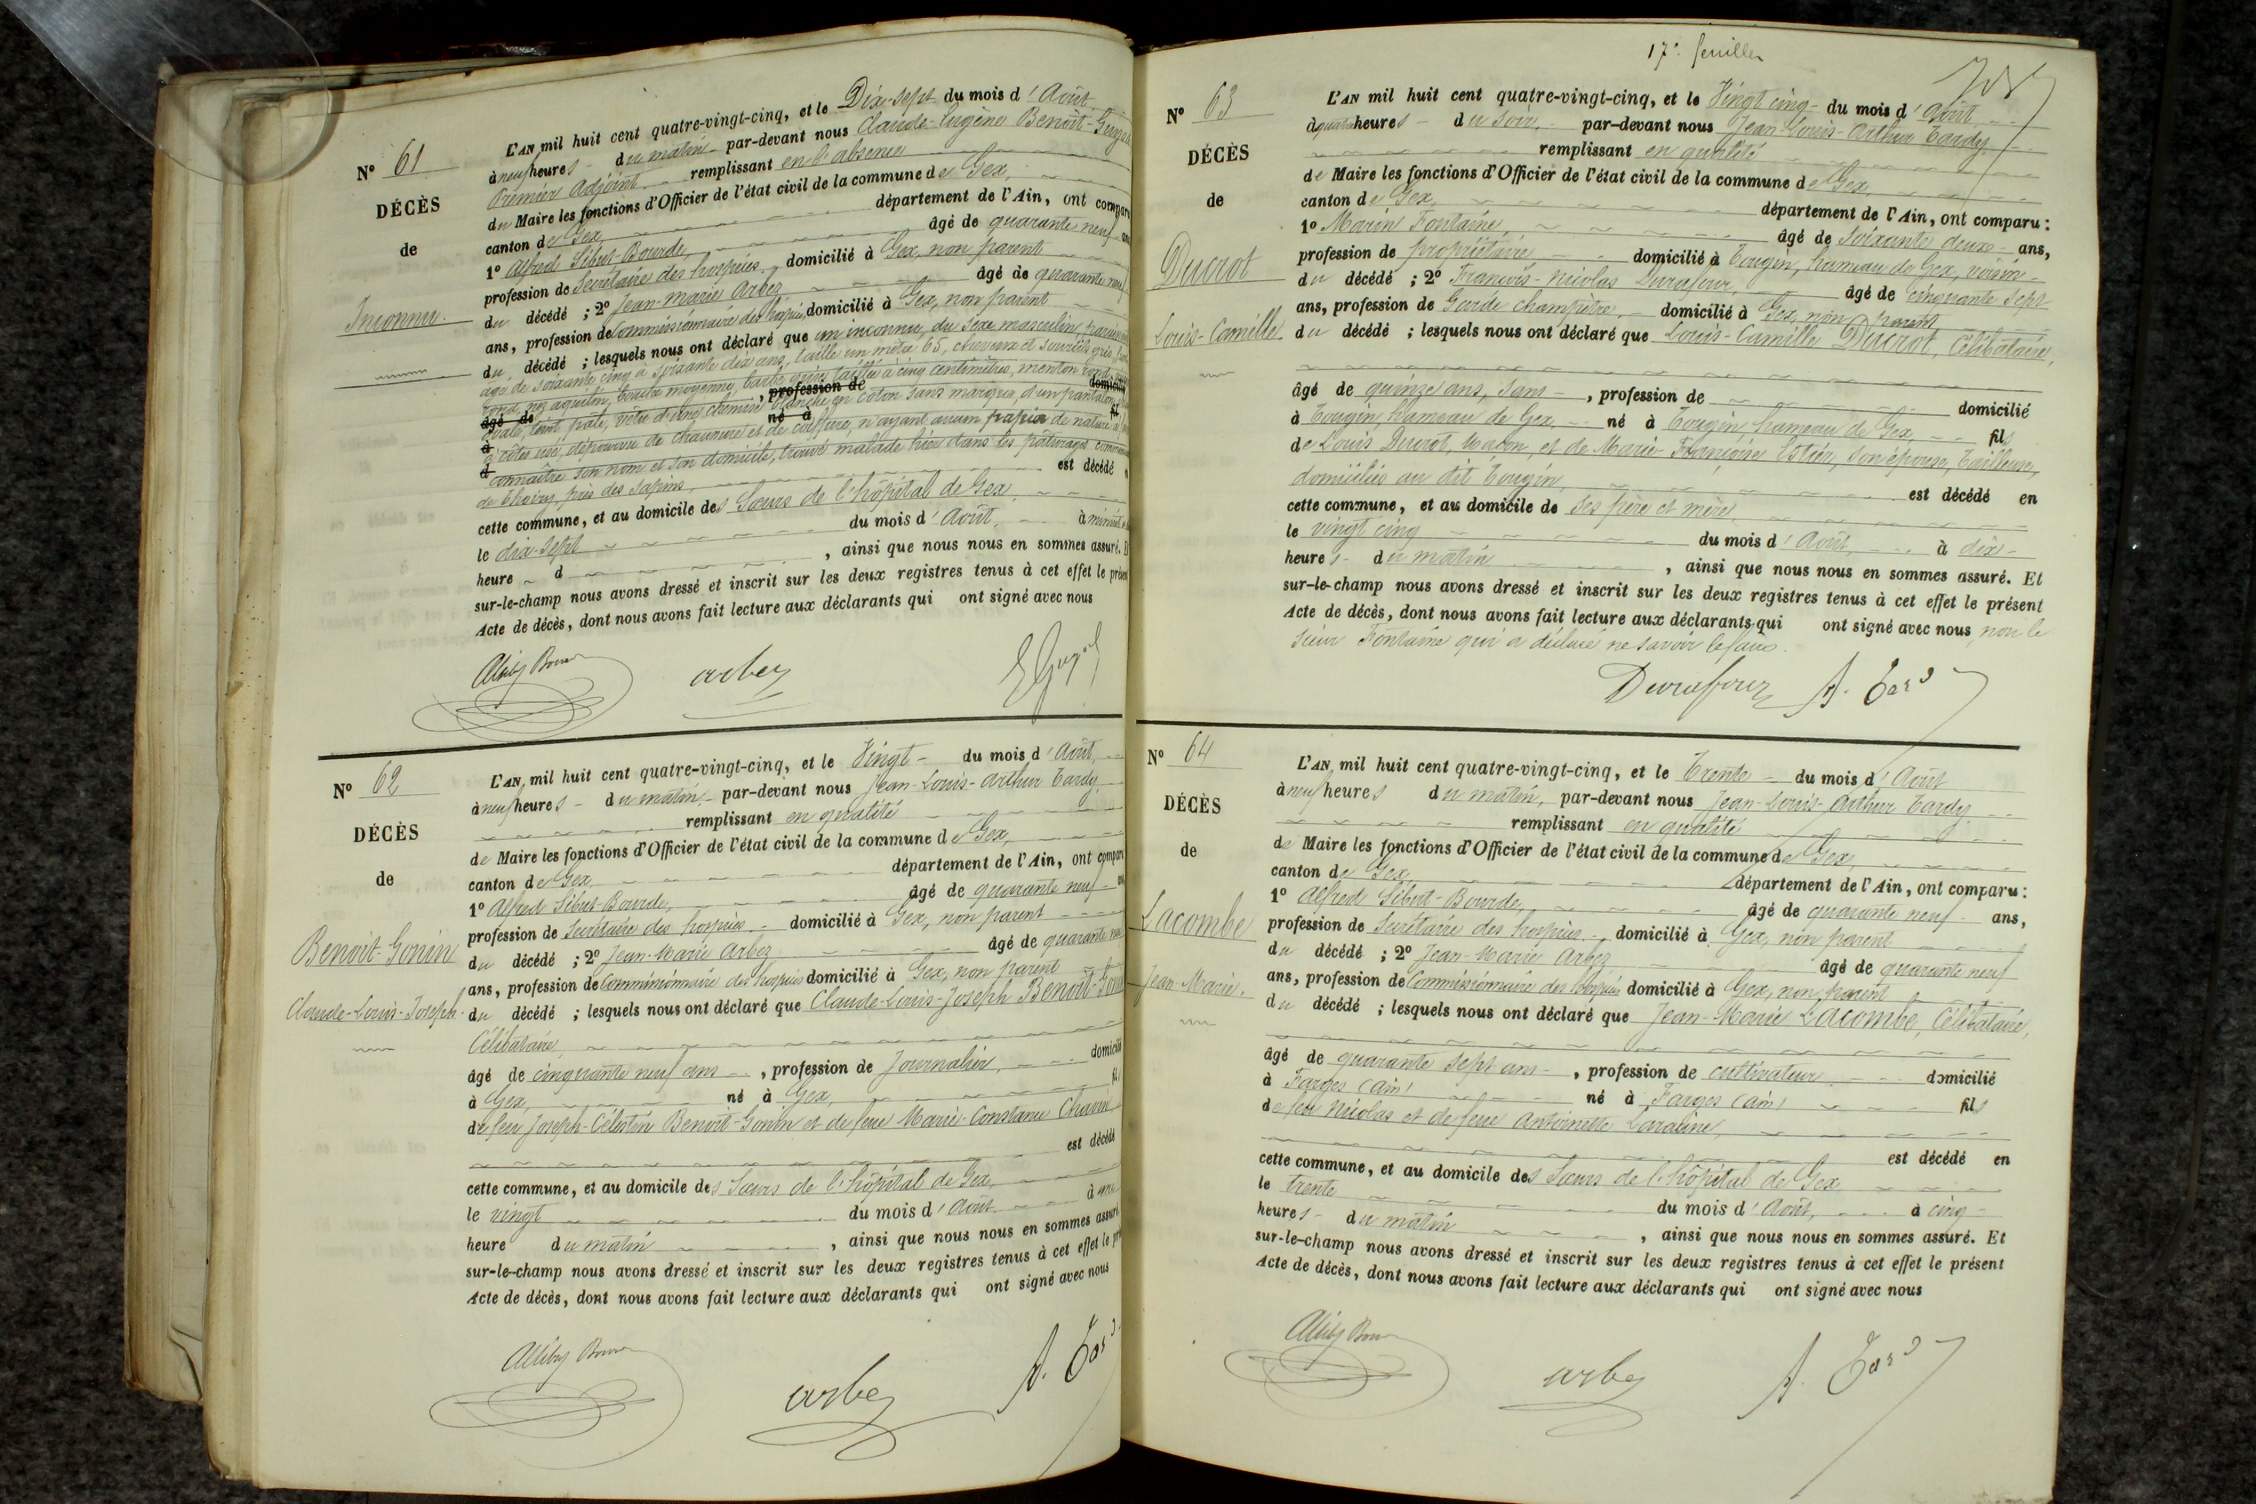 Nº 61
DÉCÈS
de
Inconnu.
L'AN mil huit cent quatre-vingt-cinq, et le Dix-sept du mois d'Août
à neuf heures du matin par-devant nous Claude-Eugène Benoît-Guyod
Premier Adjoint remplissant en l'absence
du Maire les fonctions d'Officier de l'état civil de la commune de Gex,
canton de Gex, département de l'Ain, ont comparu
1º Alfred Sibut-Bourde, âgé de quarante neuf ans
profession de Secrétaire des hospices, domicilié à Gex, non parent
du décédé ; 2º Jean-Marie Arbez âgé de quarante neuf
ans, profession de Commissionnaire des hospices domicilié à Gex, non parent
du décédé ; lesquels nous ont déclaré que un inconnu, du sexe masculin, paraissant
âgé de soixante cinq à soixante dix ans, taille un mètre 65, cheveux et sourcils gris, front
rond, nez aquilin, bouche moyenne, barbe grise taillée à cinq centimètres, menton rond, visage
ovale, teint pâle, vêtu d'une chemise blanche en coton sans marques, d'un pantalon
à côtes usé, dépourvu de chaussure et de coiffure, n'ayant aucun papier de nature à faire
connaître son nom et son domicile, trouvé malade hier dans les pâturages communaux
de Thoiry, près des sapins, est décédé en
cette commune, et au domicile des Sœurs de l'hôpital de Gex,
le dix-sept du mois d'Août, à minuit
heure d , ainsi que nous nous en sommes assuré. Et
sur-le-champ nous avons dressé et inscrit sur les deux registres tenus à cet effet le présent
Acte de décès, dont nous avons fait lecture aux déclarants qui ont signé avec nous
arbez
Nº 62
DÉCÈS
de
Benoît-Gonin
Claude-Louis-Joseph.
L'AN mil huit cent quatre-vingt-cinq, et le Vingt du mois d'Août,
à neuf heures du matin, par-devant nous Jean-Louis-Arthur Tardy,
remplissant en qualité
de Maire les fonctions d'Officier de l'état civil de la commune de Gex,
canton de Gex, département de l'Ain, ont comparu
1º Alfred Sibut-Bourde, âgé de quarante neuf ans
profession de Secrétaire des hospices, domicilié à Gex, non parent
du décédé ; 2º Jean-Marie Arbez âgé de quarante neuf
ans, profession de Commissionnaire des hospices domicilié à Gex, non parent
du décédé ; lesquels nous ont déclaré que Claude-Louis-Joseph Benoît-Gonin
Célibataire,
âgé de cinquante neuf ans, profession de Journalier, domicilié
à Gex, né à Gex, fils
de feu Joseph-Célestin Benoît-Gonin et de feue Marie-Constance Chavin
est décédé
cette commune, et au domicile des Sœurs de l'hôpital de Gex,
le vingt du mois d'Août, à une
heure du matin , ainsi que nous nous en sommes assuré
sur-le-champ nous avons dressé et inscrit sur les deux registres tenus à cet effet le présent
Acte de décès, dont nous avons fait lecture aux déclarants qui ont signé avec nous
arbez
17e feuillet
Nº 63
DÉCÈS
de
Ducrot
Louis-Camille
L'AN mil huit cent quatre-vingt-cinq, et le Vingt cinq du mois d'Août
à quatre heures du soir, par-devant nous Jean-Louis-Arthur Tardy,
remplissant en qualité
de Maire les fonctions d'Officier de l'état civil de la commune de Gex,
canton de Gex, département de l'Ain, ont comparu :
1º Marin Fontaine, âgé de soixante deux ans,
profession de propriétaire, domicilié à Tougin, hameau de Gex, voisin
du décédé ; 2º François-Nicolas Durafour, âgé de cinquante sept
ans, profession de Garde champêtre, domicilié à Gex, non parent,
du décédé ; lesquels nous ont déclaré que Louis-Camille Ducrot, Célibataire,
âgé de quinze ans, sans , profession de domicilié
à Tougin, hameau de Gex, né à Tougin, hameau de Gex, fils
de Louis Ducrot, maçon, et de Marie-Françoise Estier, son épouse, tailleuse,
domiciliés au dit Tougin, est décédé en
cette commune, et au domicile de ses père et mère
le vingt cinq du mois d'Août, à dix
heures du matin , ainsi que nous nous en sommes assuré. Et
sur-le-champ nous avons dressé et inscrit sur les deux registres tenus à cet effet le présent
Acte de décès, dont nous avons fait lecture aux déclarants qui ont signé avec nous, non le
sieur Fontaine qui a déclaré ne savoir le faire.
Durafour
Nº 64
DÉCÈS
de
Lacombe
Jean-Marie.
L'AN mil huit cent quatre-vingt-cinq, et le Trente du mois d'Août
à neuf heures du matin, par-devant nous Jean-Louis-Arthur Tardy,
remplissant en qualité
de Maire les fonctions d'Officier de l'état civil de la commune de Gex,
canton de Gex, département de l'Ain, ont comparu :
1º Alfred Sibut-Bourde, âgé de quarante neuf ans,
profession de Secrétaire des hospices, domicilié à Gex, non parent
du décédé ; 2º Jean-Marie Arbez âgé de quarante neuf
ans, profession de Commissionnaire des hospices domicilié à Gex, non parent
du décédé ; lesquels nous ont déclaré que Jean-Marie Lacombe, Célibataire,
âgé de quarante sept ans, profession de cultivateur domicilié
à Farges (ain) né à Farges (ain) fils
de feu Nicolas et de feue Antoinette
est décédé en
cette commune, et au domicile des Sœurs de l'hôpital de Gex
le trente du mois d'Août, à cinq
heures du matin , ainsi que nous nous en sommes assuré. Et
sur-le-champ nous avons dressé et inscrit sur les deux registres tenus à cet effet le présent
Acte de décès, dont nous avons fait lecture aux déclarants qui ont signé avec nous
arbez